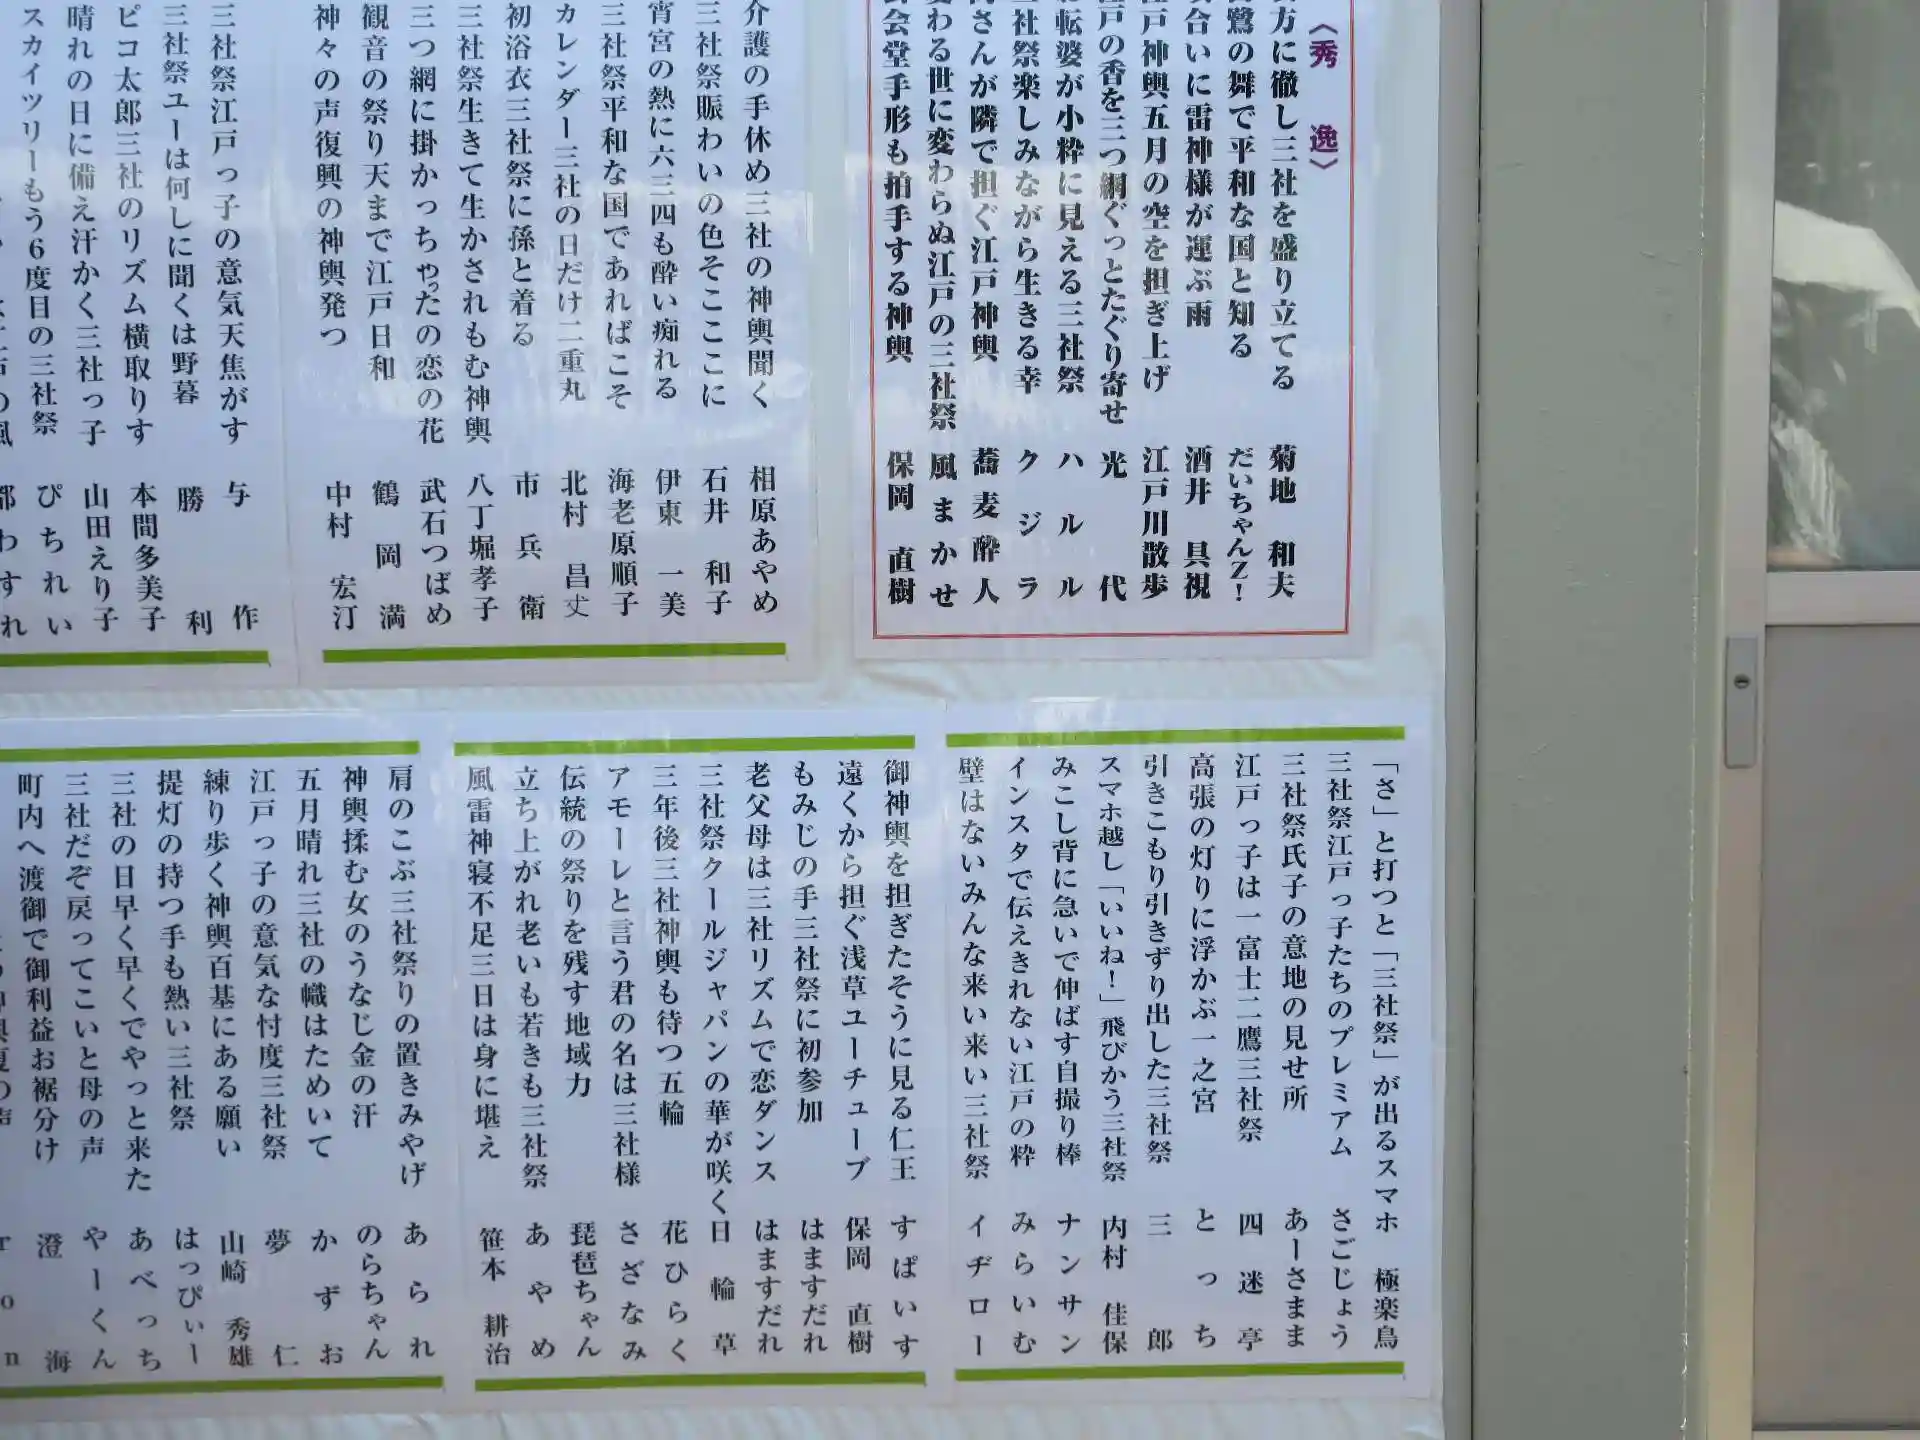 〈秀 逸〉
方に徹し三社を盛り立てる 菊地 和夫
鷺の舞で平和な国と知る だいちゃんZ!
合いに雷神様が運ぶ雨 酒井 具視
戸神輿五月の空を担ぎ上げ 江戸川散歩
戸の香を三つ網ぐっとたぐり寄せ 光代
転婆が小粋に見える三社祭 ハルル
社祭楽しみながら生きる幸 クジラ
さんが隣で担ぐ江戸神輿 蕎麦酔人
わる世に変わらぬ江戸の三社祭 風まかせ
会堂手形も拍手する神輿 保岡 直樹
介護の手休め三社の神輿聞く 相原あやめ
三社祭賑わいの色そこここに 石井 和子
宵宮の熱に六三四も酔い痴れる 伊東 一美
三社祭平和な国であればこそ 海老原順子
カレンダー三社の日だけ二重丸 北村 昌丈
初浴衣三社祭に孫と着る 市兵衛
三社祭生きて生かされもむ神輿 八丁堀孝子
三つ網に掛かっちゃったの恋の花 武石つばめ
観音の祭り天まで江戸日和 鶴岡満
神々の声復興の神輿発つ 中村 宏汀
三社祭江戸っ子の意気天焦がす 与作
三社祭ユーは何しに聞くは野暮 勝利
ピコ太郎三社のリズム横取りす 本間多美子
晴れの日に備え汗かく三社っ子 山田えり子
スカイツリーもう6度目の三社祭 ぴちれい
「さ」と打つと「三社祭」が出るスマホ 極楽鳥
三社祭江戸っ子たちのプレミアム さごじょう
三社祭氏子の意地の見せ所 あーさまま
江戸っ子は一富士二鷹三社祭 四迷亭
高張の灯りに浮かぶ一之宮 とっち
引きこもり引きずり出した三社祭 三郎
スマホ越し「いいね!」飛びかう三社祭 内村 佳保
みこし背に急いで伸ばす自撮り棒 ナンサン
インスタで伝えきれない江戸の粋 みらいむ
壁はないみんな来い来い三社祭 イヂロー
御神輿を担ぎたそうに見る仁王 すぱいす
遠くから担ぐ浅草ユーチューブ 保岡 直樹
もみじの手三社祭に初参加 はますだれ
老父母は三社リズムで恋ダンス はますだれ
三社祭クールジャパンの華が咲く 日輪草
三年後三社神輿も待つ五輪 花ひらく
アモーレと言う君の名は三社様 さざなみ
伝統の祭りを残す地域力 琵琶ちゃん
立ち上がれ老いも若きも三社祭 あやめ
風雷神寝不足三日は身に堪え 笹本 耕治
肩のこぶ三社祭りの置きみやげ あられ
神輿揉む女のうなじ金の汗 のらちゃん
五月晴れ三社の幟はためいて かずお
江戸っ子の意気な忖度三社祭 夢仁
練り歩く神輿百基にある願い 山崎 秀雄
提灯の持つ手も熱い三社祭 はっぴぃー
三社の日早く早くでやっと来た あべっち
三社だぞ戻ってこいと母の声 やーくん
町内へ渡御で御利益お裾分け 澄海